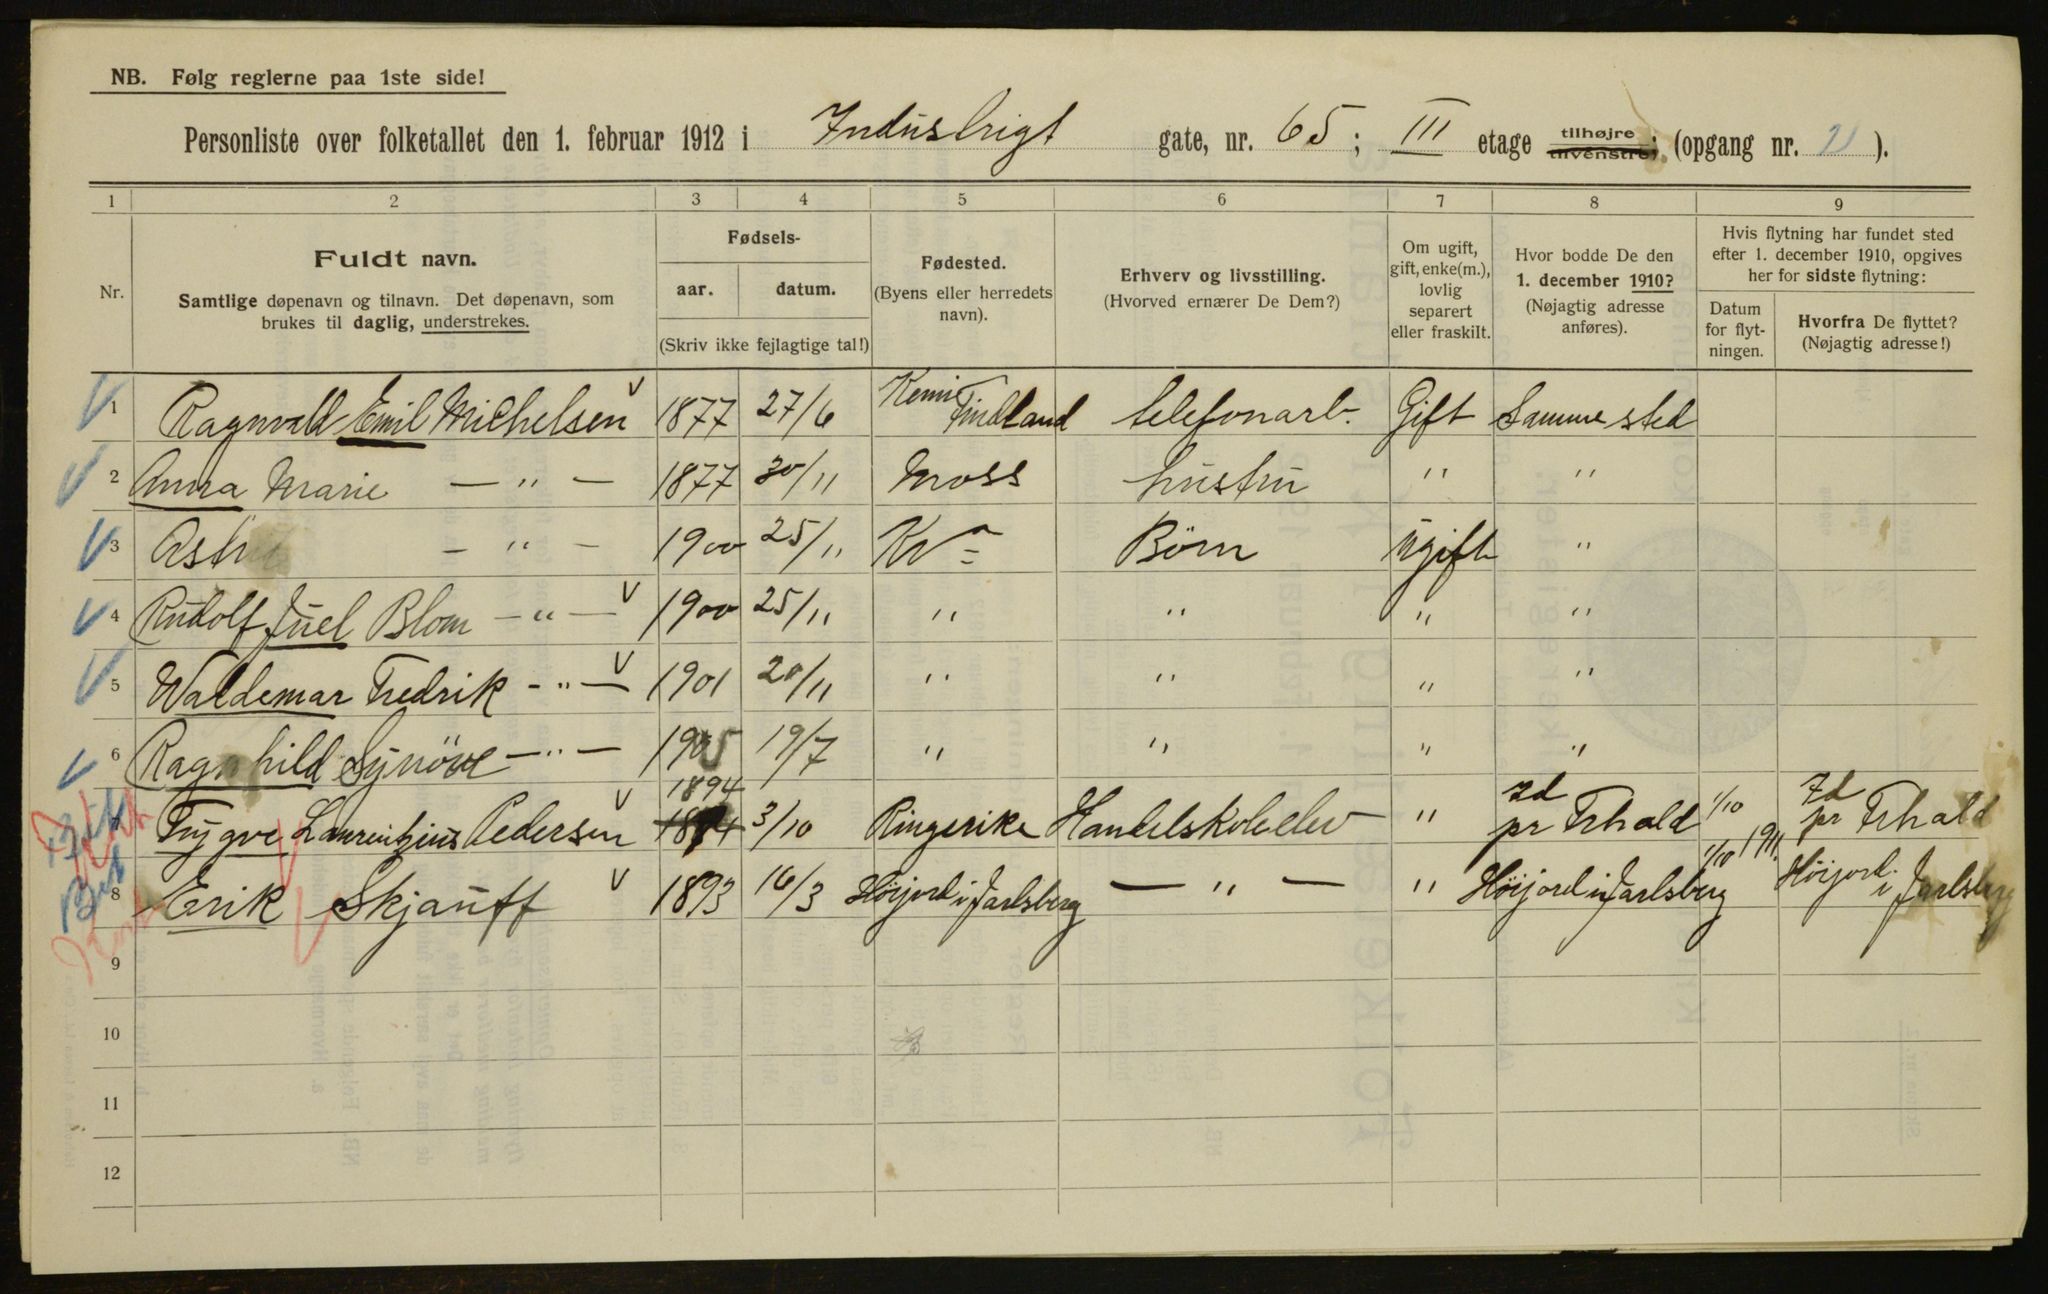 NB. Følg reglerne paa 1ste side!
Personliste over folketallet den 1. februar 1912 i Industrigt gate, nr. 65; III etage tilhøjre tilvenstre; (opgang nr. 21).
1 2 3 4 5 6 7 8 9
Nr.
Fuldt navn.
Samtlige døpenavn og tilnavn. Det døpenavn, som
brukes til daglig, understrekes.
Fødsels-
aar. datum.
(Skriv ikke fejlagtige tal!)
Fødested.
(Byens eller herredets
navn).
Erhverv og livsstilling.
(Hvorved ernærer De Dem?)
Om ugift,
gift, enke(m.),
lovlig
separert
eller fraskilt.
Hvor bodde De den
1. december 1910?
(Nøjagtig adresse
anføres).
Hvis flytning har fundet sted
efter 1. december 1910, opgives
her for sidste flytning:
Datum
for flyt-
ningen.
Hvorfra De flyttet?
(Nøjagtig adresse!)
1 Ragnvald Emil Michelsen 1877 27/6 Kemi Findland telefonarb. Gift Samme sted
2 Anna Marie — " — 1877 30/11 Moss hustru " "
3 Astrid — " — 1900 25/11 Kra Børn ugift "
4 Rudolf Juel Blom — " — 1900 25/11 " " " "
5 Waldemar Fredrik - " — 1901 20/11 " " " "
6 Ragnhild Synöve — " — 1905 19/7 " " " "
7 Trygve Laurentzius Pedersen 1894 3/10 Ringerike Handelskoleelev " Id pr Frhald 1/10 Id pr Frhald
8 Erik Skjauff 1893 16/3 Höijord i Jarlsberg — " — " Höijord i Jarlsberg 1/10 1911. Höijord i Jarlsberg
9
10
11
12